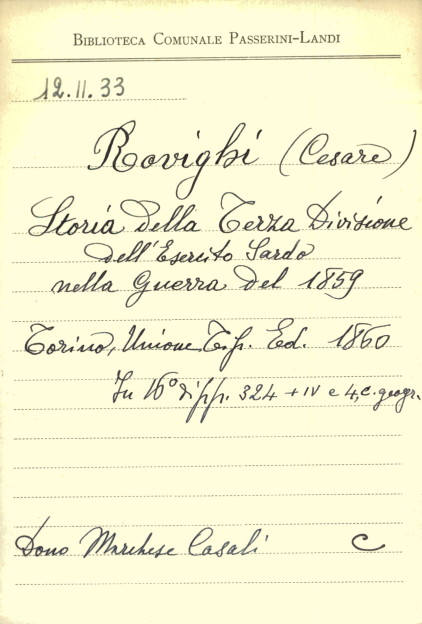 BIBLIOTECA COMUNALE PASSERINI-LANDI
12.II.33
Rovighi (Cesare)
Storia della Terza Divisione
dell'Esercito Sardo
nella Guerra del 1859
Torino, Unione Tip. Ed. 1860
In 16° di pp. 324 + IV e 4 c. geogr.
Dono Marchese Casali C